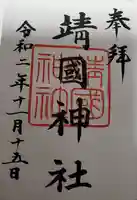 奉拝
靖國神社
令和二年十一月十五日
靖國神社